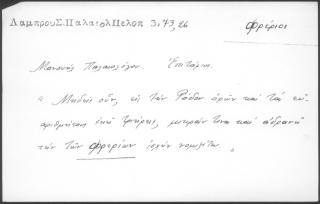 Λαμπρου Σ. Παλαιολ Πελοπ 3.73,26
Φρέριοι
Μανουὴλ Παλαιολόγου. Ἐπιτάφιος.
« Μηδεὶς οὖν, εἰς τὴν Ῥόδον ὁρῶν καὶ τὰς εὐ-
αριθμήτους ἐκεῖ τριήρεις, μετρίαν τινα καὶ ἀδρανῆ
τὴν τῶν Φρερίων ἰσχὺν νομιζέτω. »